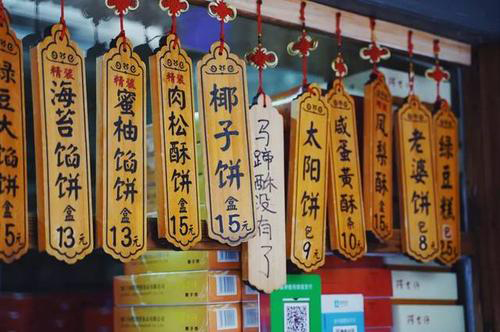 绿豆大馅饼 盒 5元
精装 海苔馅饼 盒 13元
精装 蜜柚馅饼 盒 13元
精装 肉松酥饼 盒 15元
椰子饼 盒 15元
马蹄酥没有了
太阳饼 包 9元
咸蛋黄酥 条 10元
凤梨酥 盒 15元
老婆饼 包 8元
绿豆糕 盒 15元